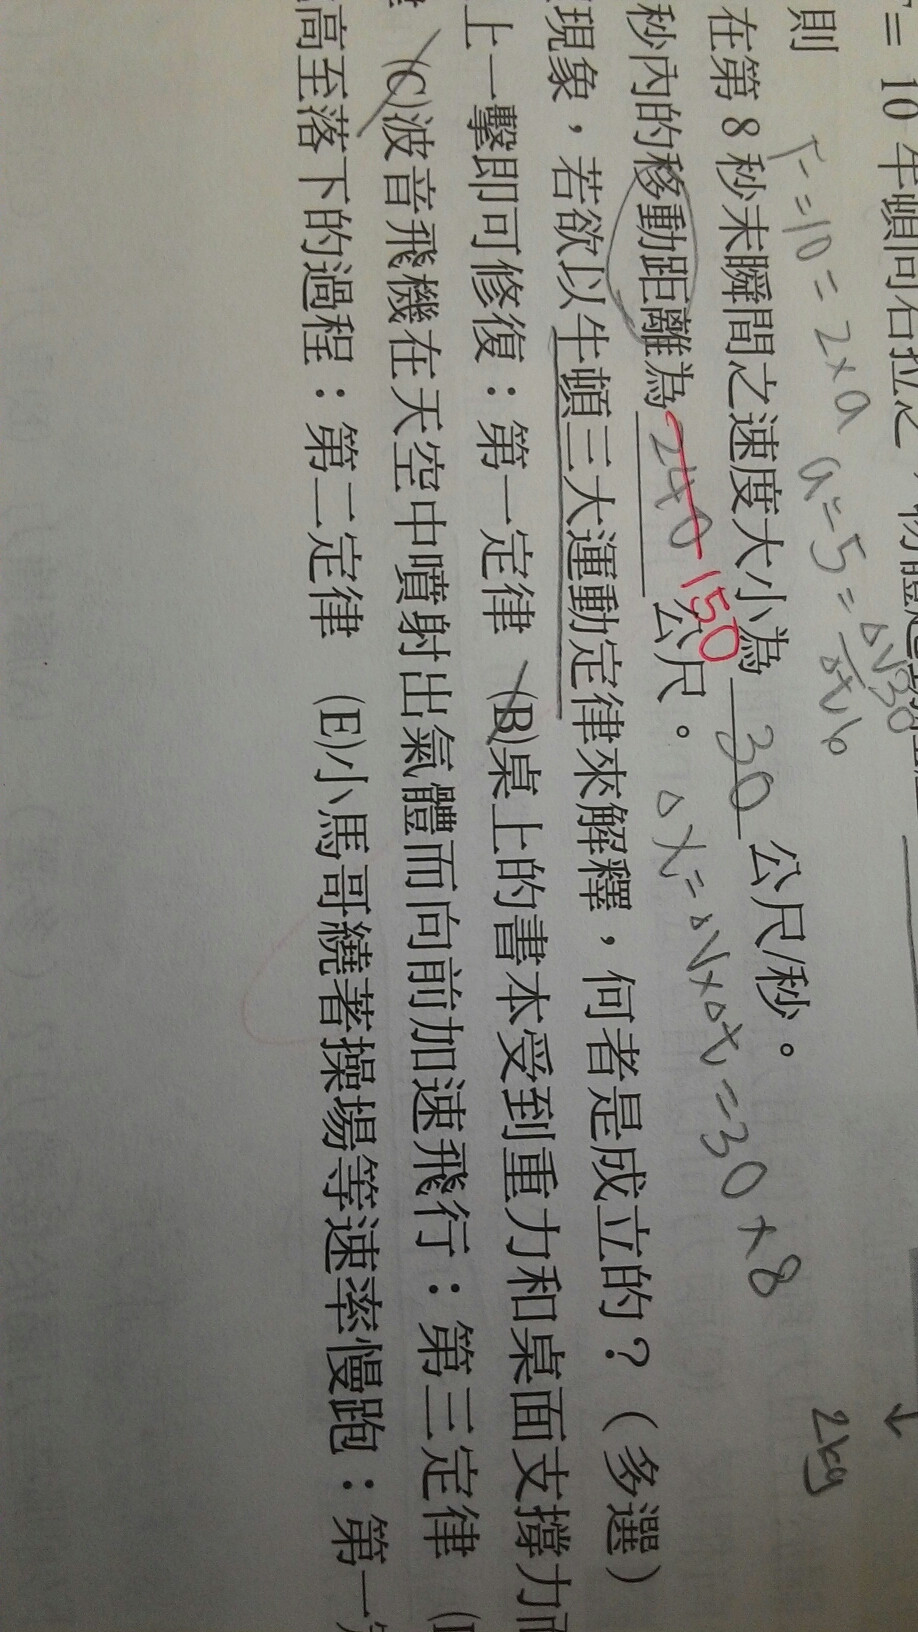 = 10 牛頓向右拉之，物體
則 F=10=2×a a=5=Δv30/Δt6
在第 8 秒末瞬間之速度大小為 30 公尺/秒。
秒內的移動距離為 240 150 公尺。 Δx=Δv×Δt=30×8
現象，若欲以牛頓三大運動定律來解釋，何者是成立的？（多選）
上一擊即可修復：第一定律 (B)桌上的書本受到重力和桌面支撐力而
(C)波音飛機在天空中噴射出氣體而向前加速飛行：第三定律
高至落下的過程：第二定律 (E)小馬哥繞著操場等速率慢跑：第一
↓
2kg